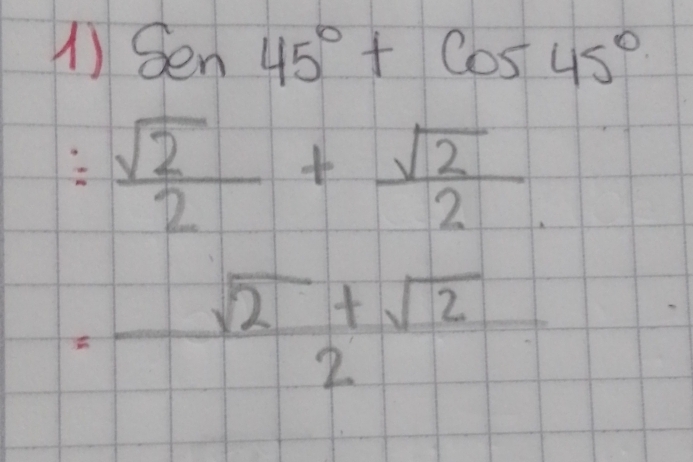 1) Sen 45° + Cos 45°
÷ √2/2 + √2/2.
= √2 + √2/2